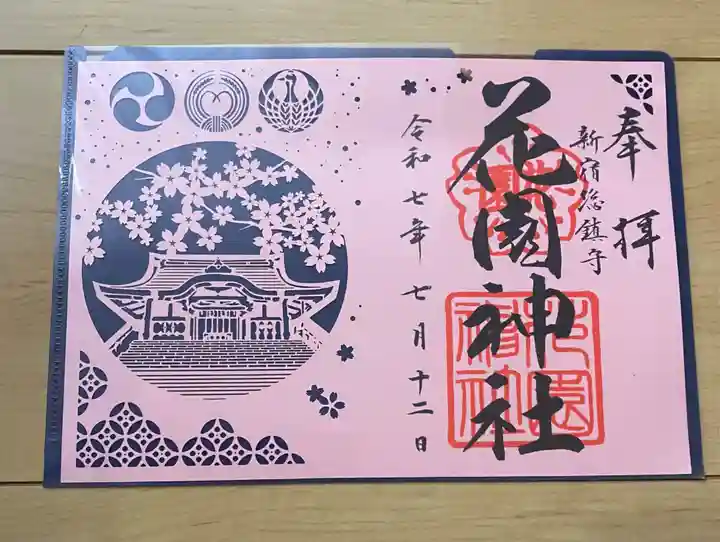 奉拝
新宿総鎮守
花園神社
令和七年七月十二日